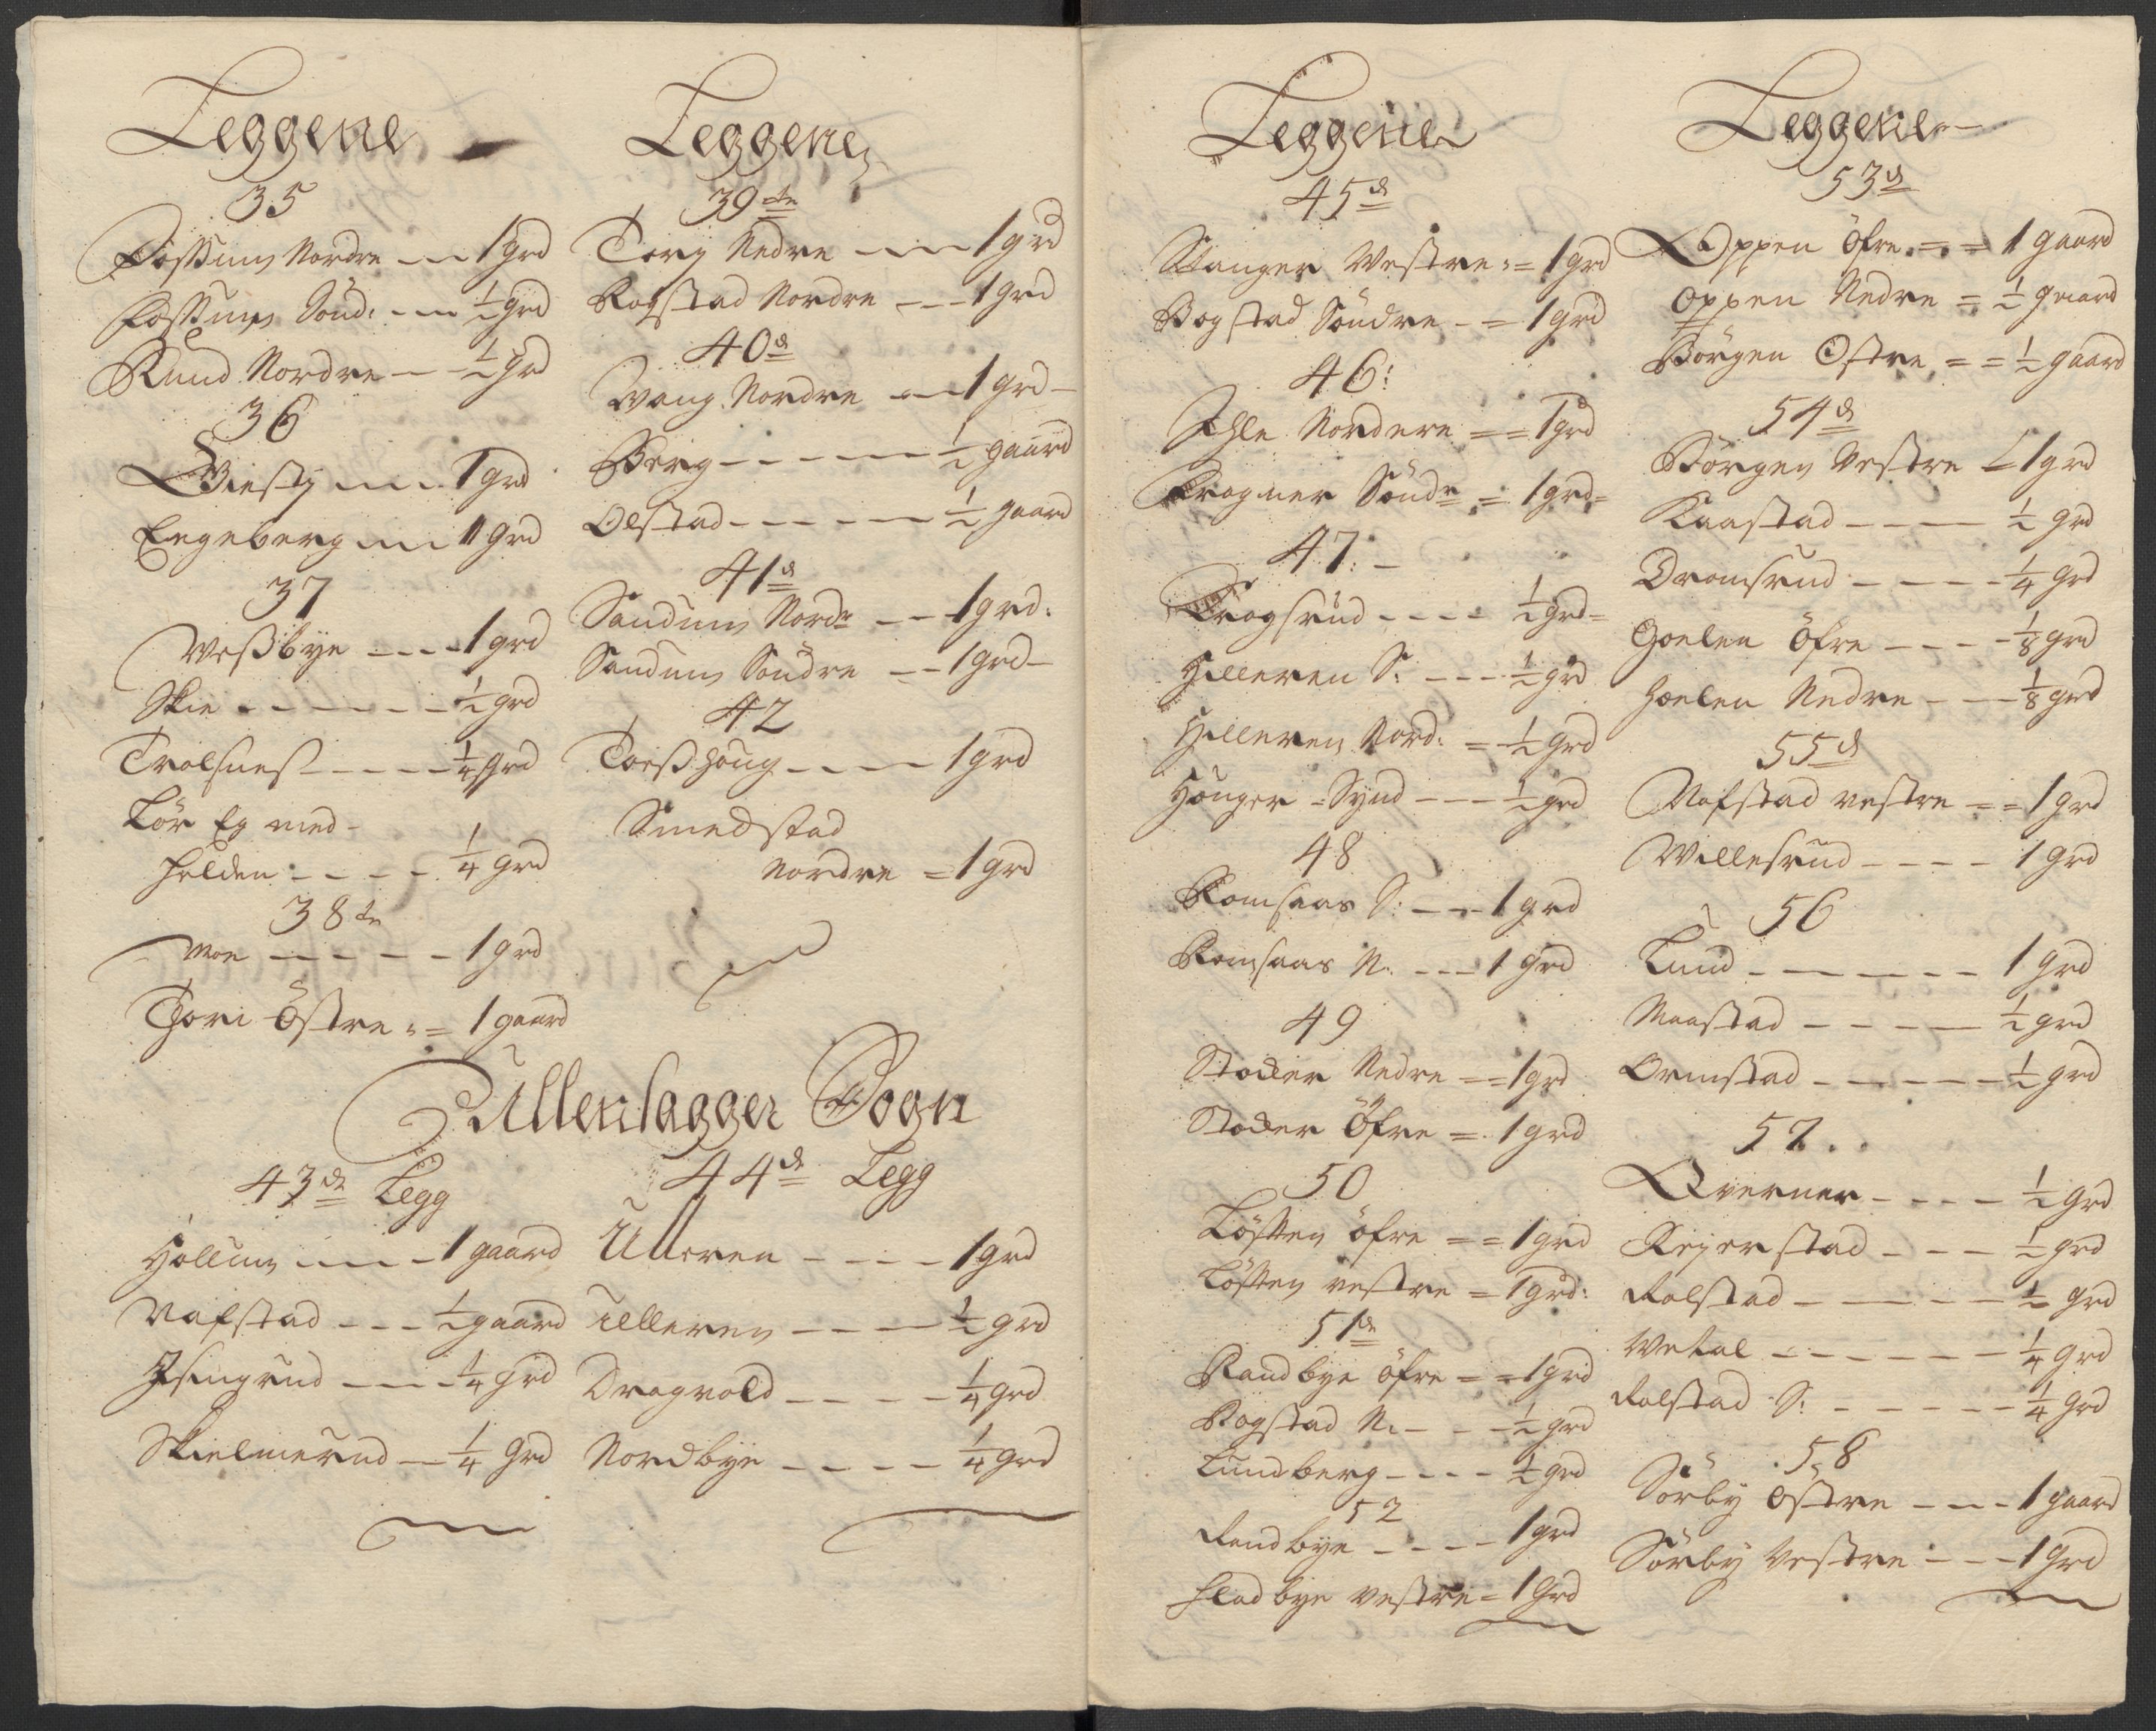 Leggene
35
Fossum Nordre 1 grd
Fossum Sönd: ½ grd
Ruud Nordre ½ grd
36
Wiesty 1 grd
Engeberg 1 grd
37
Weßbye 1 grd
Skie ½ grd
Trolsneß ¼ grd
Kör Eg med
Helden ¼ grd
38de
Moe 1 grd
Thori Östre 1 gaard
Leggene
39de
Torp Nedre 1 grd
Rogstad Nordre 1 grd
40d
Wang Nordre 1 grd
Berg ½ gaard
Olstad ½ gaard
41d
Sandum Nordr 1 grd
Sandum Söndre 1 grd
42
Torßhoug 1 grd
Smedstad
Nordre 1 grd
Ullensagger Sogn
43de Legg
Hollum 1 gaard
Nafstad ½ gaard
Isingrud ¼ grd
Skielmerud ¼ grd
44de Legg
Ulleren 1 grd
Ulleren ½ grd
Dragvold ¼ grd
Nordbye ¼ grd
Leggene
45d
Stanger Westre 1 grd
Bogstad Söndre 1 grd
46:
Ihle Nordere 1 grd
Krogner Söndr 1 grd
47:
Krogsrud ½ grd
Hilleren S: ½ grd
Hilleren Nord: ½ grd
Hönger Synd ½ grd
48
Romsaas S: 1 grd
Romsaas N: 1 grd
49
Stocker Nedre 1 grd
Stocker Öfre 1 grd
50
Lösten öfre 1 grd
Lösten vestre 1 grd:
51de
Randbye öfre 1 grd
Bogstad N: ½ grd
Lundberg ½ grd
52
Randbye 1 grd
Fladbye vestre 1 grd
Leggene
53d
Oppen Öfre 1 gaard
Oppen Nedre ½ gaard
Börgen Östre ½ gaard
54d
Börgen Vestre 1 grd
Kaastad ½ grd
Dromsrud ¼ grd
Hoelen Öfre ⅛ grd
Hoelen Nedre ⅛ grd
55d
Nafstad vestre 1 grd
Willesrud 1 grd
56
Lund 1 grd
Maastad ½ grd
Ormstad ½ grd
57
Qverner ½ grd
Rejerstad ½ grd
Rolstad ½ grd
Wetal ¼ grd
Rolstad S: ¼ grd
58
Sörby Östre 1 gaard
Sörby Vestre 1 grd